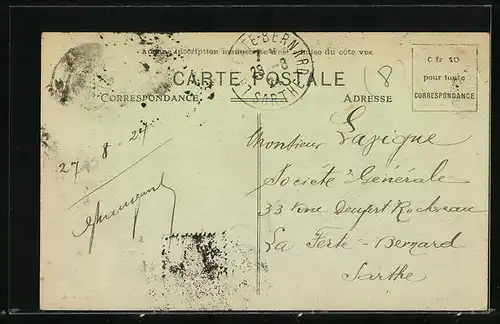 Aucune inscription manuscrite n'est admise du côté vue
LA FERTE-BERNARD
28 - 8
SARTHE
CARTE POSTALE
CORRESPONDANCE
ADRESSE
0 fr 10
pour toute
CORRESPONDANCE
(8)
27 - 8 - 24
Monsieur Lavigne
Société Générale
33 Rue Denfert Rochereau
La Ferté - Bernard
Sarthe